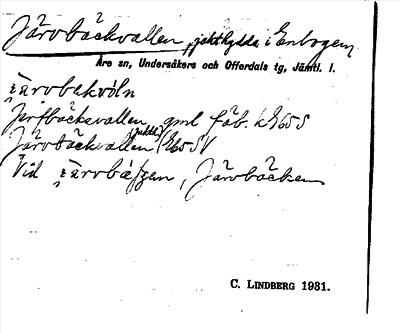 Järvbäckvallen, jakthydda i Enbogen,
Åre sn, Undersåkers och Offerdals tg, Jämtl. l.
järvbekvóln
Jerfbäcksvallen, gml fäb.
Järvbäckvallen (jakth)
Vid, Järvbäcken
C. LINDBERG 1931.